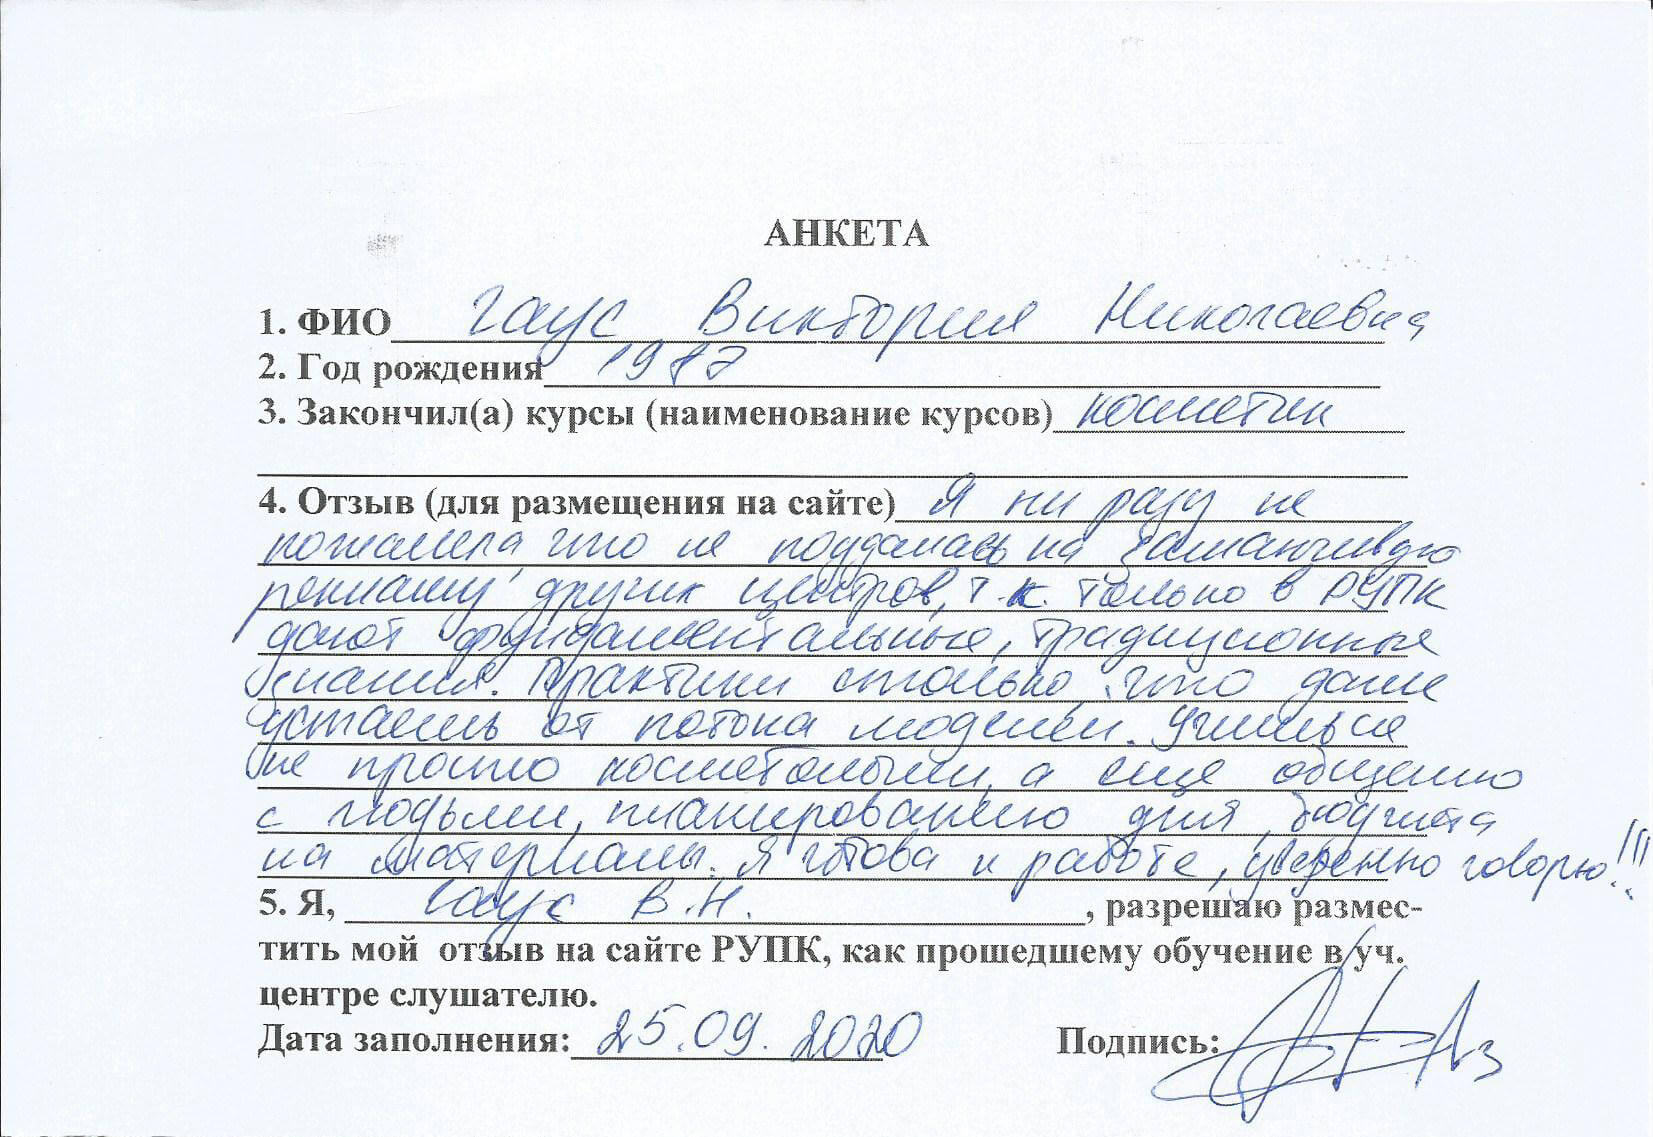 АНКЕТА
1. ФИО Гаус Виктория Николаевна
2. Год рождения 1987
3. Закончил(а) курсы (наименование курсов) косметик
4. Отзыв (для размещения на сайте) Я ни разу не
пожалела, что не поддалась на заманчивую
рекламу других центров, т.к. только в РУПК
дают фундаментальные, традиционные
знания. Практики столько, что даже
устаешь от потока моделей. Учишься
не просто косметологии, а еще общению
с людьми, планированию дня, бюджета
на материалы. Я готова к работе, уверенно говорю!!!
5. Я, Гаус В.Н. , разрешаю размес-
тить мой отзыв на сайте РУПК, как прошедшему обучение в уч.
центре слушателю.
Дата заполнения: 25.09.2020 Подпись: